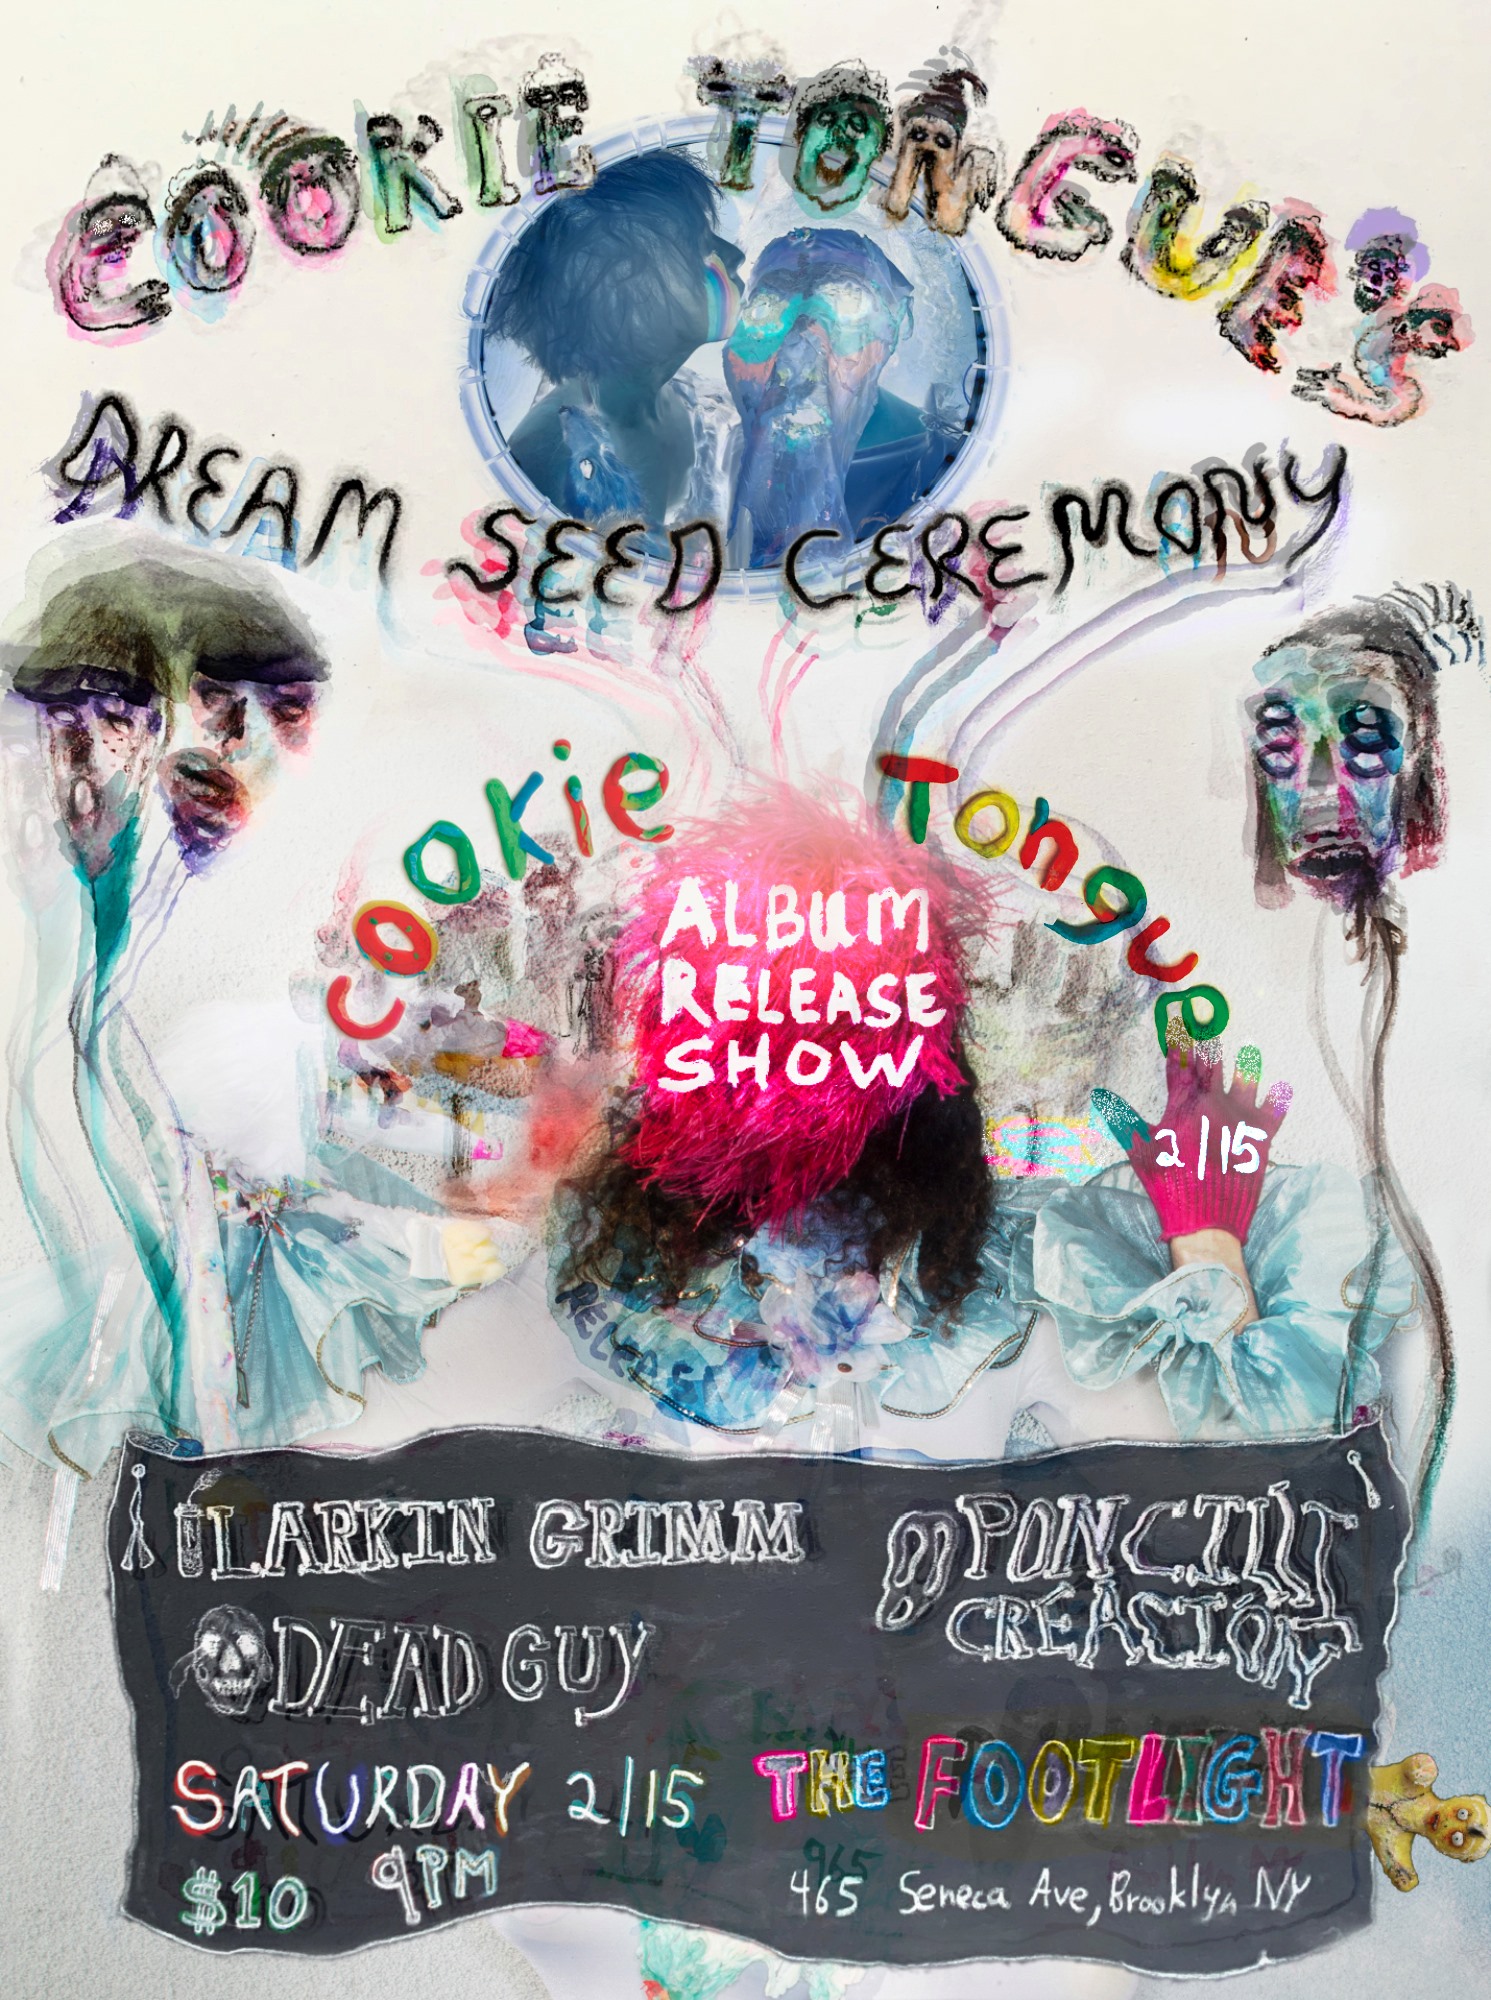 COOKIE TONGUES
DREAM SEED CEREMONY
Cookie Tongue
ALBUM
RELEASE
SHOW
2/15
RELEASE
LARKIN GRIMM
PONCILI
CREACIÓN
DEAD GUY
SATURDAY 2/15
THE FOOTLIGHT
$10 9PM
465 Seneca Ave, Brooklyn NY